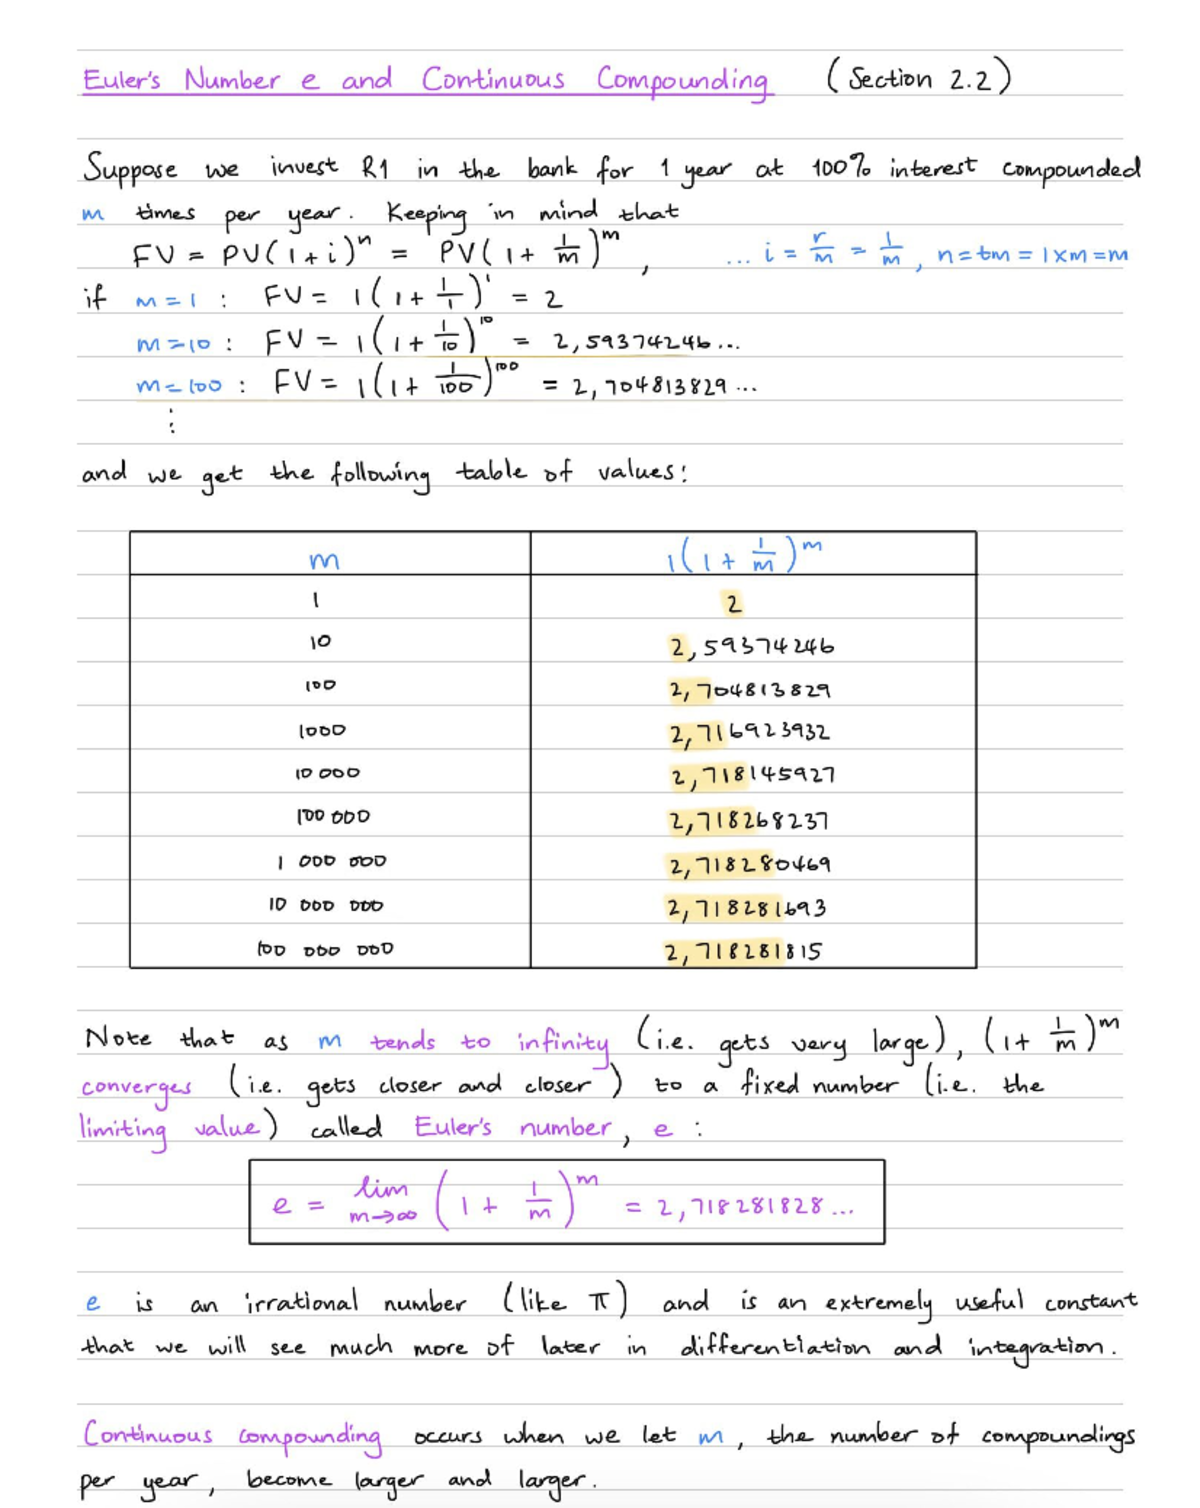 Euler's Number e and Continuous Compounding (Section 2.2)
Suppose we invest R1 in the bank for 1 year at 100% interest compounded
m times per year. Keeping in mind that
FV = PV(1+i)^n = PV(1 + 1/m)^m, ... i = r/m = 1/m, n = tm = 1×m = m
if m=1 : FV = 1(1 + 1/1)^1 = 2
m=10 : FV = 1(1 + 1/10)^10 = 2,59374246...
m=100 : FV = 1(1 + 1/100)^100 = 2,704813829...
⋮
and we get the following table of values:
m 1(1 + 1/m)^m
1 2
10 2,59374246
100 2,704813829
1000 2,716923932
10 000 2,718145927
100 000 2,718268237
1 000 000 2,718280469
10 000 000 2,718281693
100 000 000 2,718281815
Note that as m tends to infinity (i.e. gets very large), (1 + 1/m)^m
converges (i.e. gets closer and closer) to a fixed number (i.e. the
limiting value) called Euler's number, e :
e = lim m→∞ (1 + 1/m)^m = 2,718281828...
e is an irrational number (like π) and is an extremely useful constant
that we will see much more of later in differentiation and integration.
Continuous compounding occurs when we let m, the number of compoundings
per year, become larger and larger.